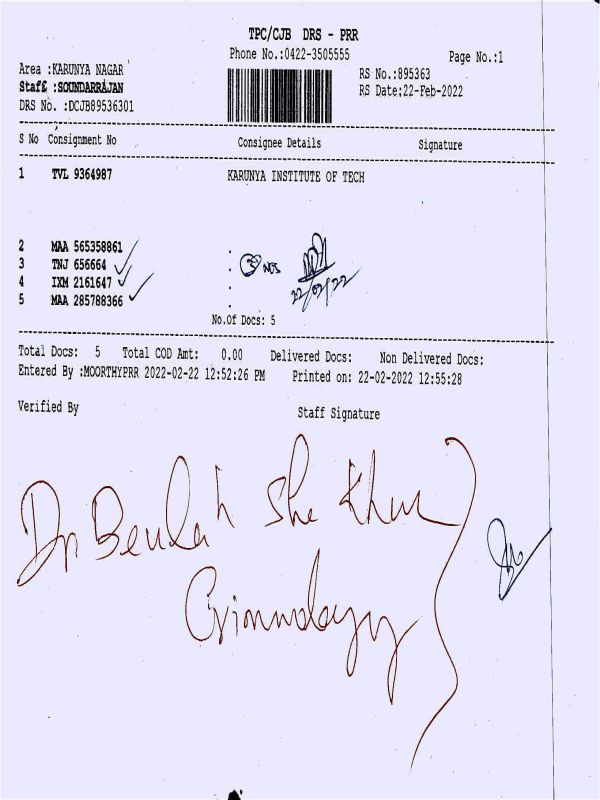 TPC/CJB DRS - PRR
Phone No.:0422-3505555
Page No.:1
Area :KARUNYA NAGAR
RS No.:895363
Staff :SOUNDARRAJAN
RS Date:22-Feb-2022
DRS No. :DCJB89536301
S No Consignment No Consignee Details Signature
1 TVL 9364987 KARUNYA INSTITUTE OF TECH
2 MAA 565358861 :
3 TNJ 656664 : 3 NOS
4 IXM 2161647 : 22/02/22
5 MAA 285788366 :
No.Of Docs: 5
Total Docs: 5 Total COD Amt: 0.00 Delivered Docs: Non Delivered Docs:
Entered By :MOORTHYPRR 2022-02-22 12:52:26 PM Printed on: 22-02-2022 12:55:28
Verified By Staff Signature
Dr Beulah Shekhar
Criminology